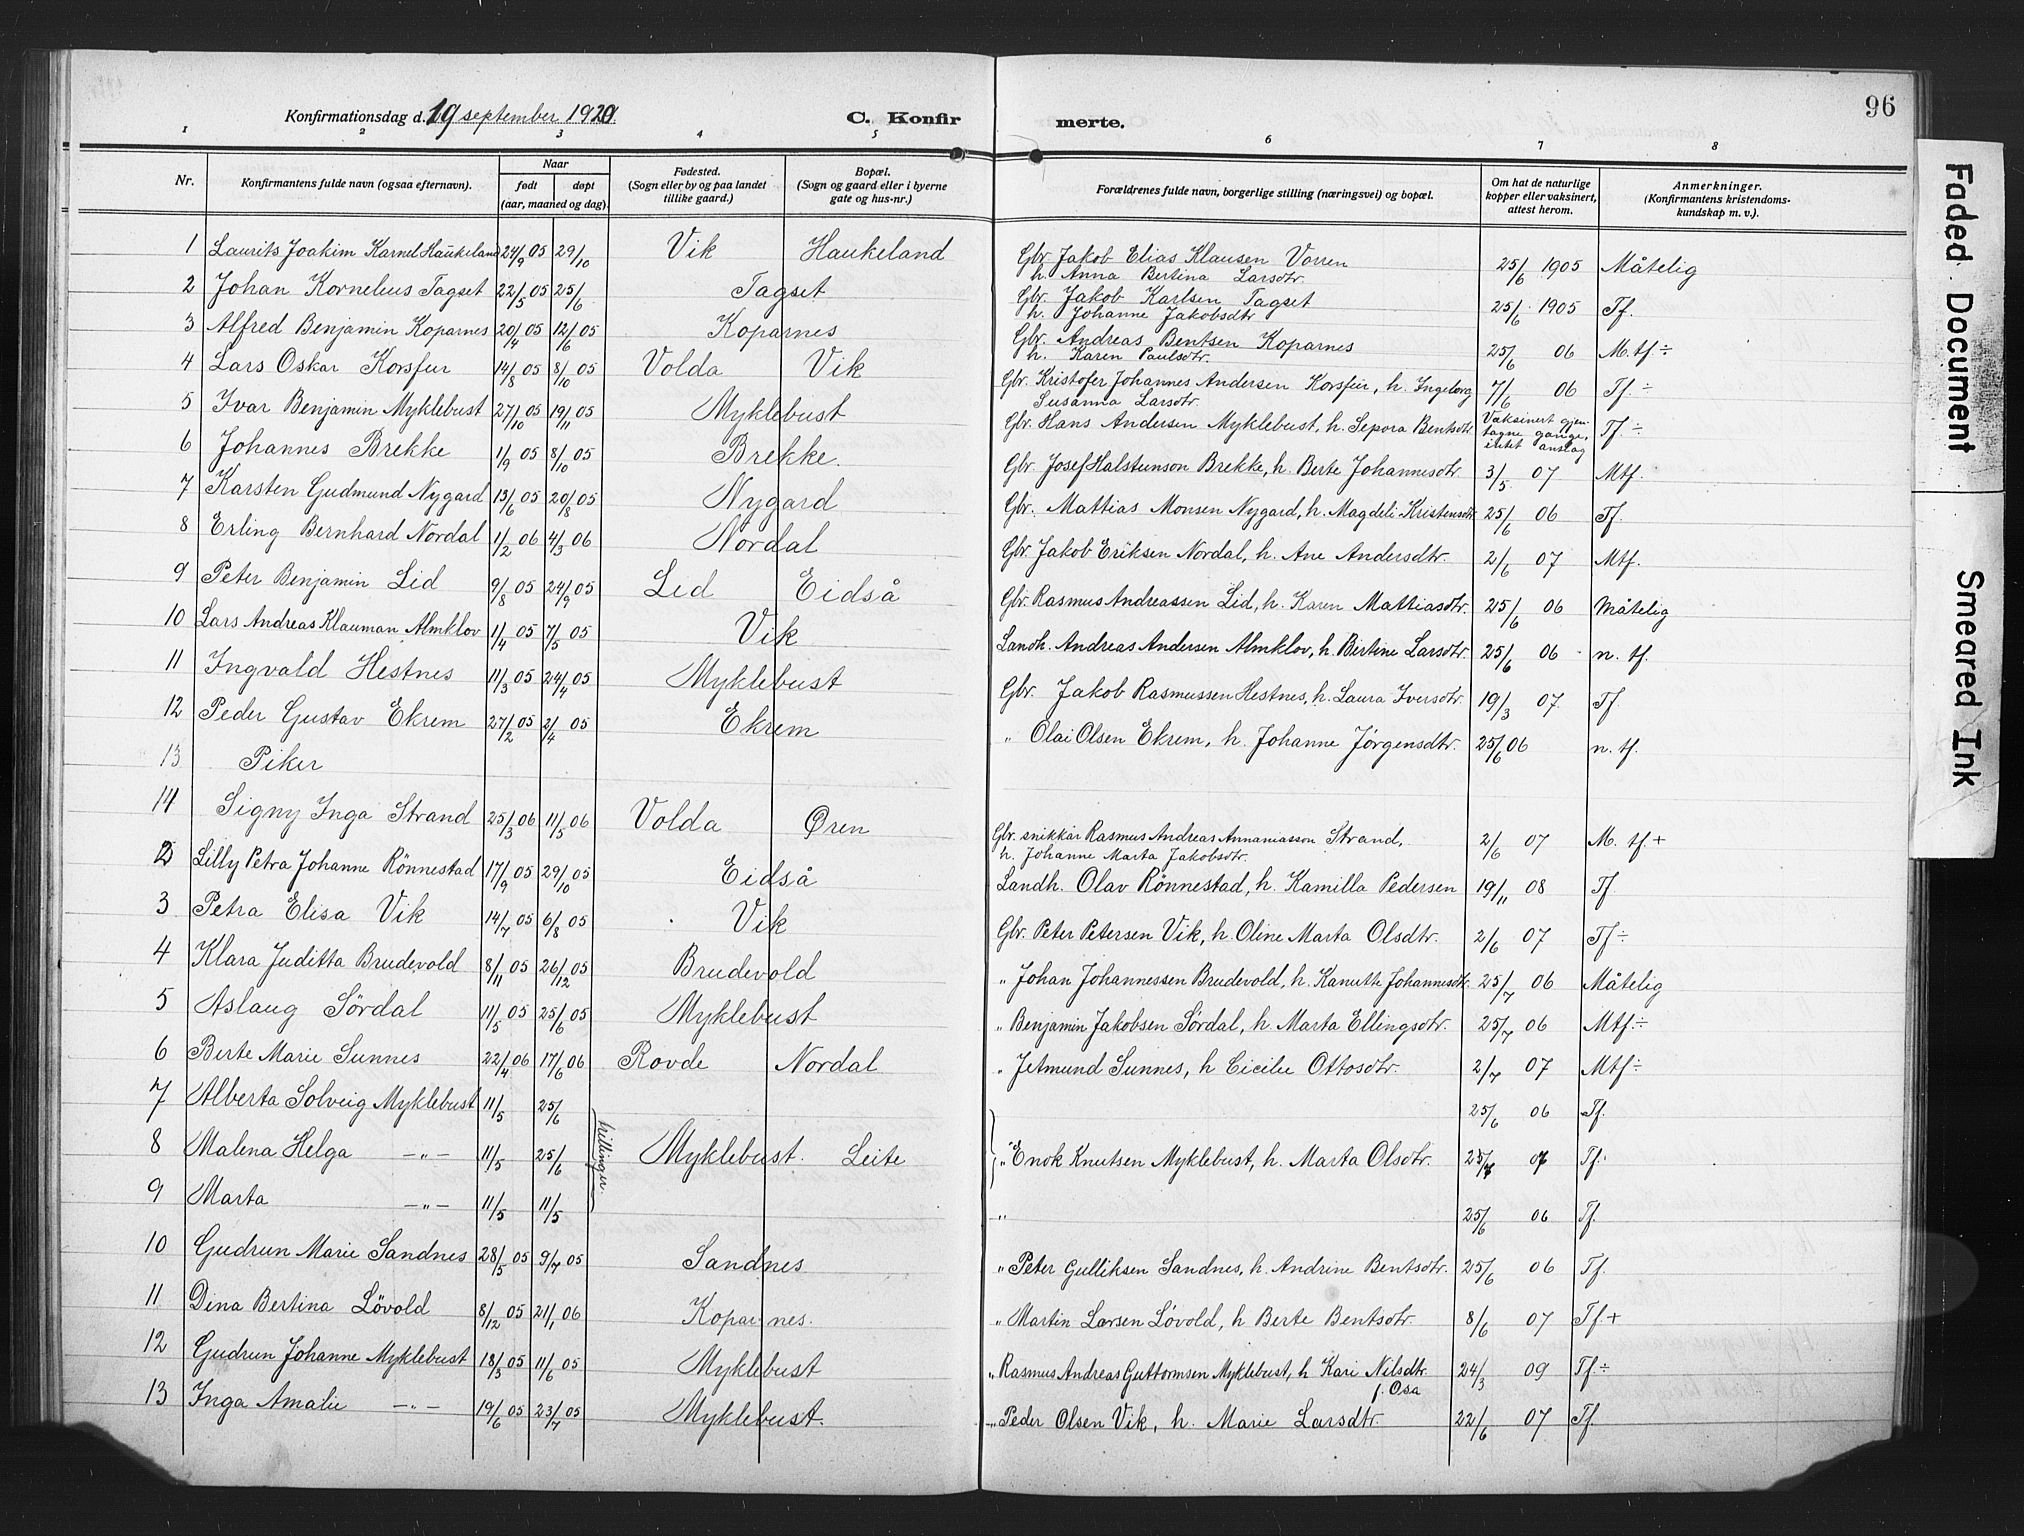 96
Konfirmationsdag d. 19 september 1920. C. Konfirmerte.
1 2 3 4 5 6 7 8
Nr. Konfirmantens fulde navn (ogsaa efternavn). Naar født døpt (aar, maaned og dag) Fødested. (Sogn eller by og paa landet tillike gaard.) Bopæl. (Sogn og gaard eller i byerne gate og hus-nr.) Forældrenes fulde navn, borgerlige stilling (næringsvei) og bopæl. Om hat de naturlige kopper eller vaksinert, attest herom. Anmerkninger. (Konfirmantens kristendomskundskap m. v.).
1 Laurits Joakim Karnel Haukeland 24/9 05 29/10 Vik Haukeland Gbr. Jakob Elias Klausen Vorren h. Anna Bertina Larsdtr. 25/6 1905 Måtelig
2 Johan Kornelius Tagset 22/5 05 25/6 Tagset Gbr. Jakob Karlsen Tagset h. Johanne Jakobsdtr 25/6 1905 Tf.
3 Alfred Benjamin Koparnes 20/4 05 12/6 05 Koparnes Gbr. Andreas Bentsen Koparnes h. Karen Paulsdtr. 25/6 06 M.tf ÷
4 Lars Oskar Korsfur 14/8 05 8/10 05 Volda Vik Gbr. Kristofer Johannes Andersen Korsfur, h. Ingeborg Susanna Larsdtr. 7/6 06 Tf. ÷
5 Ivar Benjamin Myklebust 27/10 05 19/11 05 Myklebust Gbr. Hans Andersen Myklebust, h. Sepora Bentsdtr Vaksinert gjentagne gange, intet anslag Tf ÷
6 Johannes Brekke 1/9 05 8/10 05 Brekke. Gbr. Josef Halstensson Brekke, h. Berte Johannesdtr. 3/5 07 Mtf.
7 Karsten Gudmund Nygard 13/6 05 20/8 05 Nygard Gbr. Mattias Monsen Nygard, h. Magdeli Kristensdtr 25/6 06 Tf.
8 Erling Bernhard Nordal 1/2 06 4/3 06 Nordal Gbr. Jakob Eriksen Nordal, h. Ane Andersdtr. 2/6 07 Mtf.
9 Peter Benjamin Lid 9/8 05 24/9 05 Lid Eidså Gbr. Rasmus Andreassen Lid, h. Karen Mattiasdtr. 25/6 06 Måtelig
10 Lars Andreas Klauman Almklov 1/4 05 7/5 05 Vik Landh. Andreas Andersen Almklov, h. Bertine Larsdtr. 25/6 06 n. tf.
11 Ingvald Hestnes 11/3 05 24/4 05 Myklebust Gbr. Jakob Rasmussen Hestnes, h. Laura Iversdtr. 19/3 07 Tf
12 Peder Gustav Ekrem 27/2 05 2/4 05 Ekrem " Olai Olsen Ekrem, h. Johanne Jörgensdtr. 25/6 06 n. tf.
13 Piker
14 Signy Inga Strand 25/3 06 11/5 06 Volda Øren Gbr. snikkar Rasmus Andreas Annaniasson Strand, h. Johanne Marta Jakobsdtr. 2/6 07 M. tf +
2 Lilly Petra Johanne Rönnestad 17/9 05 29/10 05 Eidså Landh. Olav Rönnestad, h. Kamilla Pedersen 19/11 08 Tf
3 Petra Elisa Vik 14/7 05 6/8 05 Vik Gbr. Peter Petersen Vik, h. Oline Marta Olsdtr. 2/6 07 Tf ÷
4 Klara Juditta Brudevold 8/11 05 26/12 05 Brudevold " Johan Johannessen Brudevold, h. Kanutte Johannesdtr. 25/7 06 Måtelig
5 Aslaug Sördal 11/5 05 25/6 05 Myklebust " Benjamin Jakobsen Sördal, h. Marta Ellingsdtr. 25/7 06 Mtf ÷
6 Berte Marie Sunnes 22/4 06 17/6 06 Rovde Nordal " Jetmund Sunnes, h Cicilie Ottosdtr. 2/7 07 Mtf ÷
7 Alberta Solveig Myklebust 11/5 25/6 25/6 06 Tf.
8 Malena Helga —"— 11/5 25/6 trillinger Myklebust. Leite " Enok Knutsen Myklebust, h. Marta Olsdtr. Tf.
9 Marta —"— 11/5 11/5 " 25/6 06 Tf.
10 Gudrun Marie Sandnes 28/5 05 9/7 05 Sandnes " Peter Gulliksen Sandnes, h. Andrine Bentsdtr. 25/6 06 Tf.
11 Dina Bertina Lövold 8/12 05 21/1 06 Koparnes. " Martin Larsen Lövold, h Berte Bentsdtr. 8/6 07 Tf +
12 Gudrun Johanne Myklebust 18/3 05 11/6 05 Myklebust " Rasmus Andreas Guttormsen Myklebust, h Kari Nilsdtr. f. Osa 24/3 09 Tf ÷
13 Inga Amalie —"— 19/6 05 23/7 05 Myklebust. " Peder Olsen Vik, h. Marie Larsdtr. 22/6 07 Tf.
Faded Document
Smeared Ink